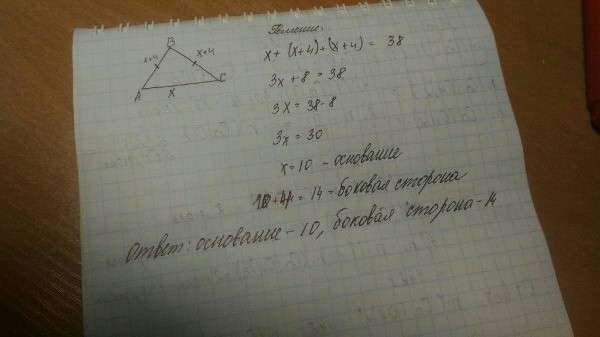 Решение:
B
x+4 x+4
A x C
x + (x+4) + (x+4) = 38
3x + 8 = 38
3x = 38-8
3x = 30
x = 10 - основание
10 + 4 = 14 - боковая сторона
Ответ: основание - 10, боковая сторона - 14